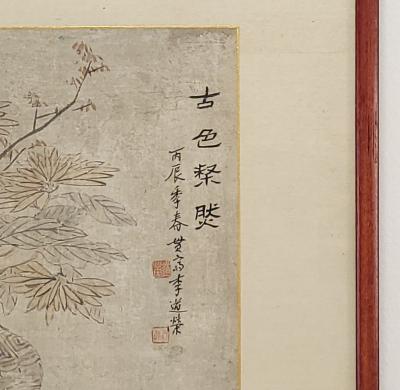 古色粲然
丙辰季春李道榮